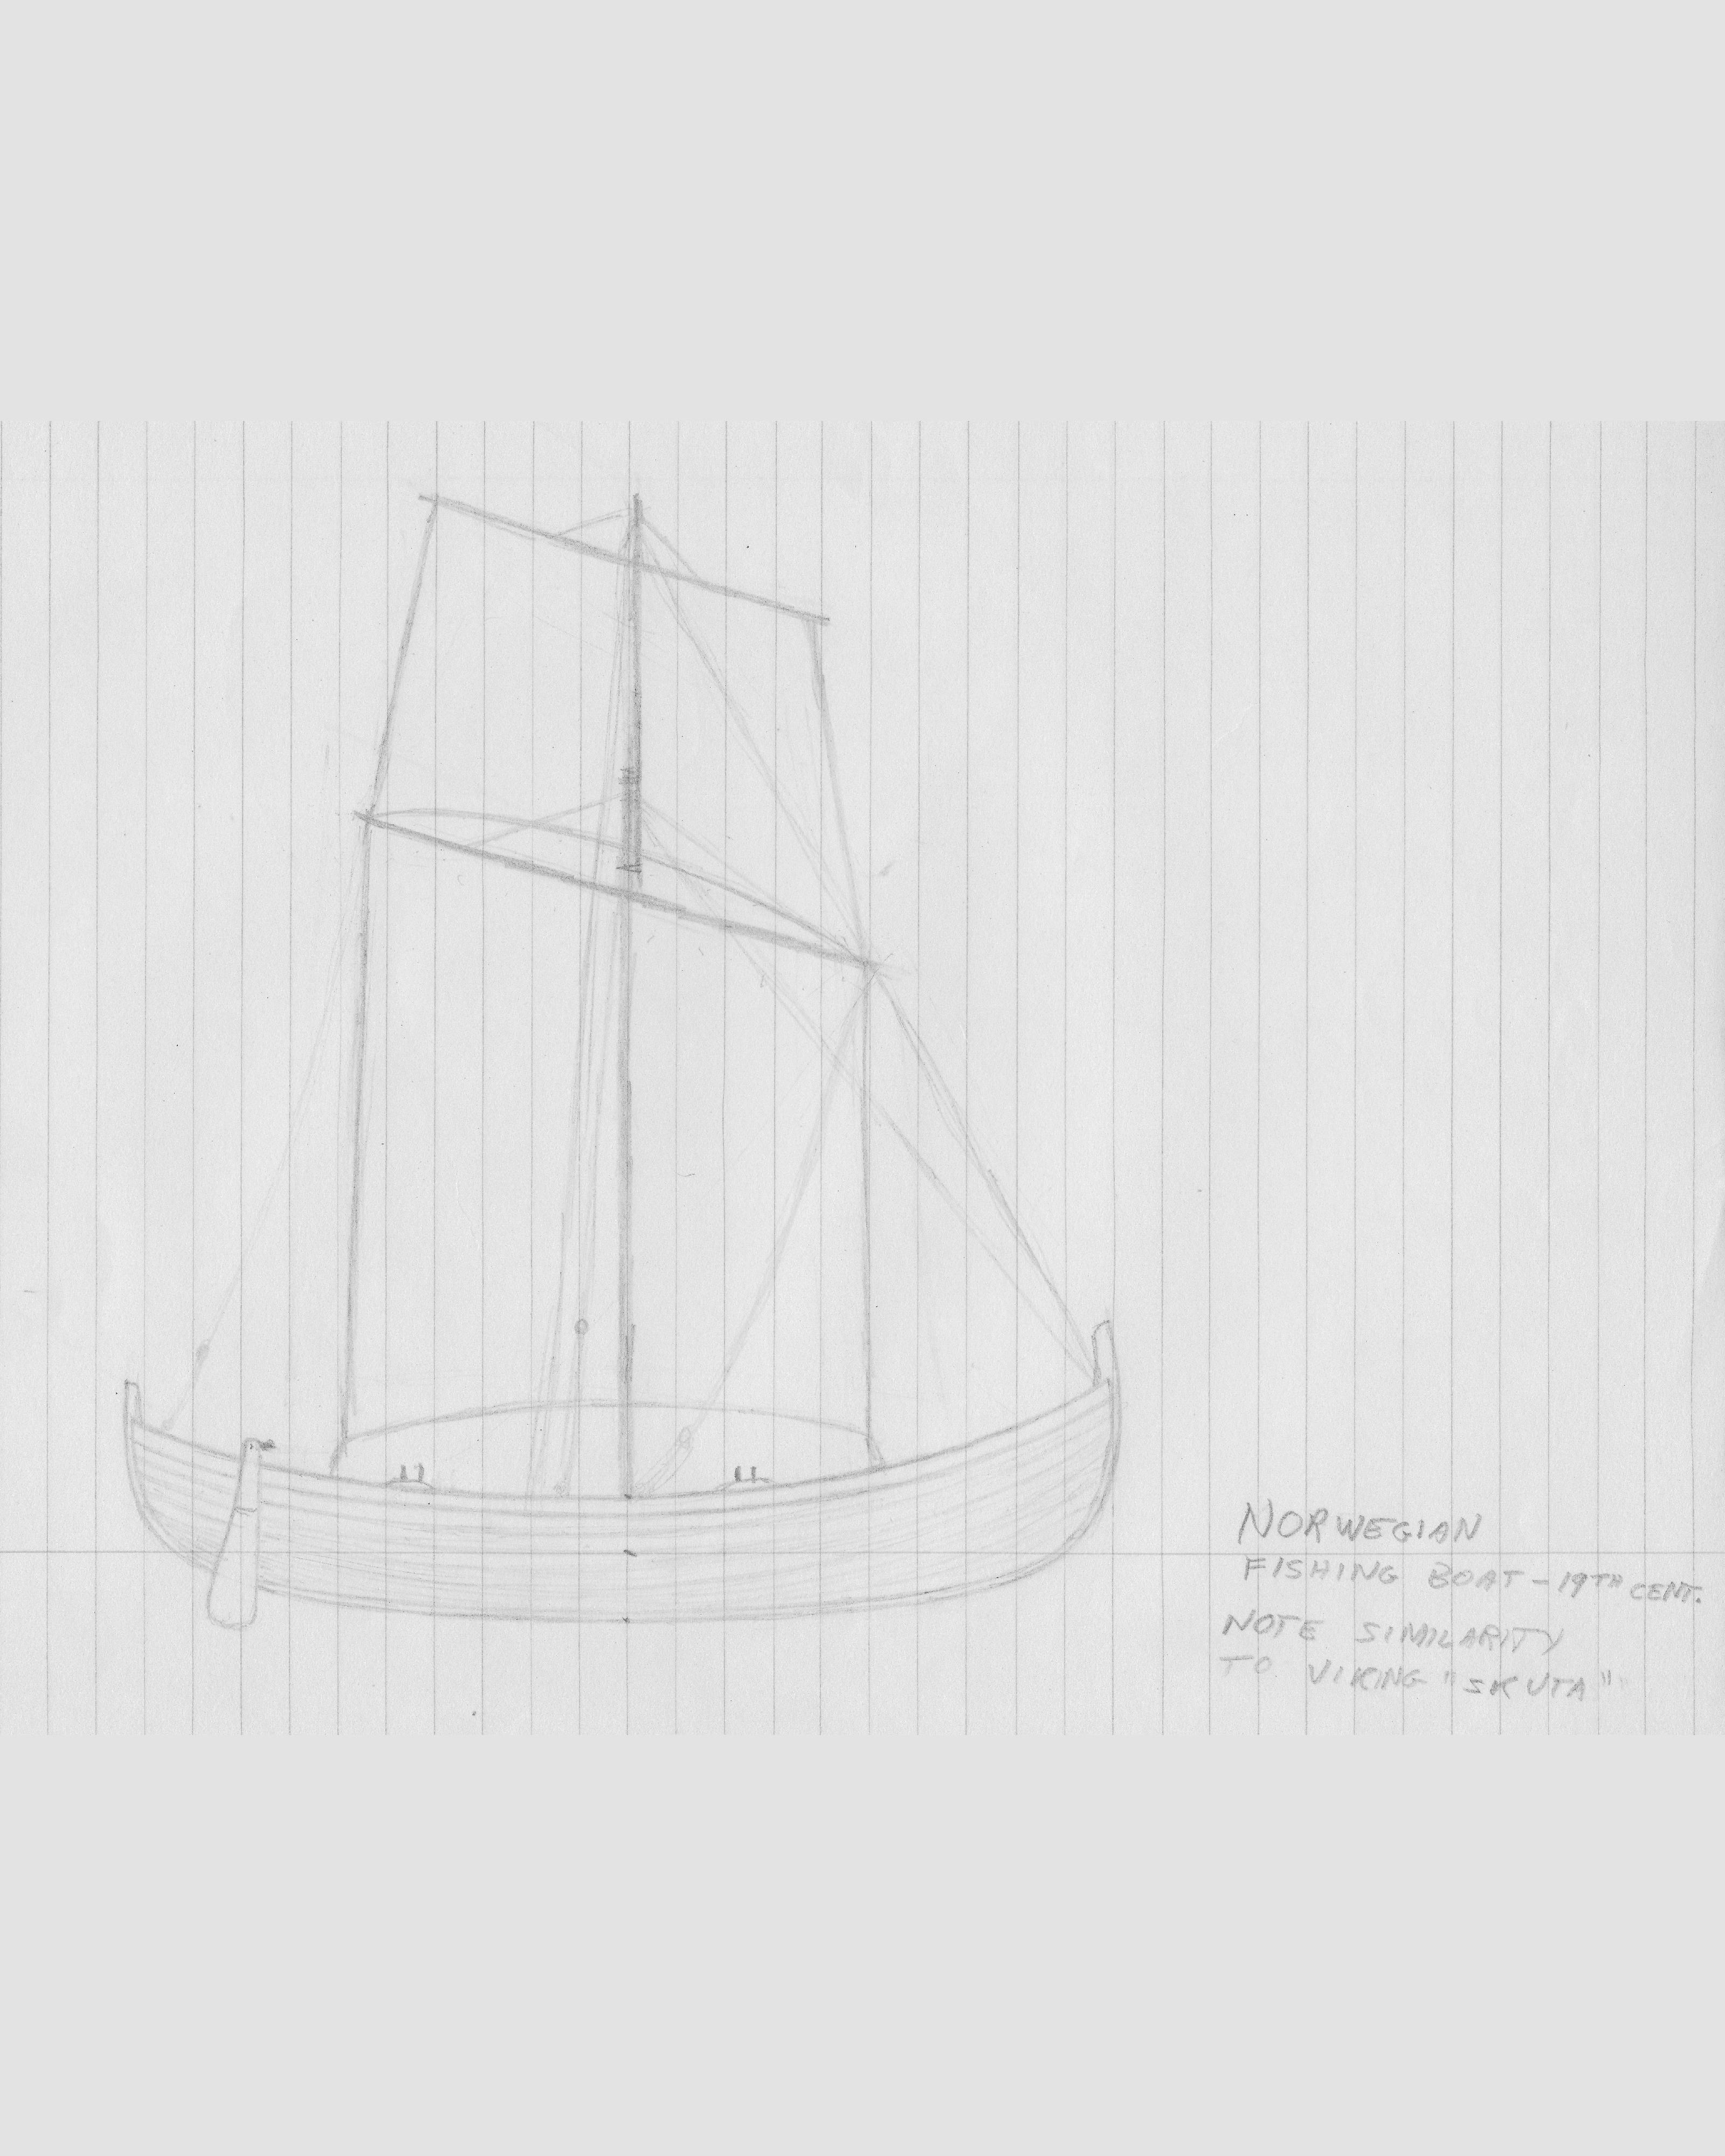 NORWEGIAN
FISHING BOAT - 19TH CENT.
NOTE SIMILARITY
TO VIKING "SKUTA"